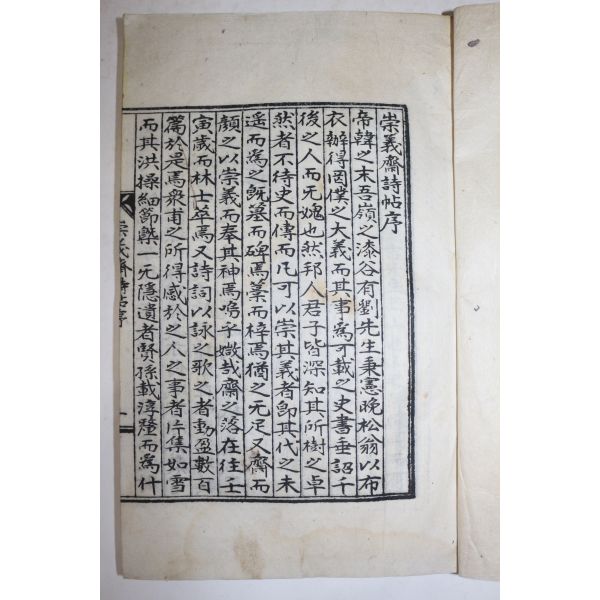 崇義齋詩帖序
帝韓之末吾嶺之漆谷有劉先生秉憲晩松翁以布
衣辦得罔僕之大義而其事爲可載之史書垂詔千
後之人而无媿也然邦人君子皆深知其所樹之卓
然者不待史而傳而凡可以崇其義者卽其代之未
遥而爲之旣墓而碑焉藁而梓焉猶之无足又齋而
顔之以崇義而奉其神焉嗚乎媺哉齋之落在往壬
寅歲而林士萃焉又詩詞以詠之歌之者動盈數百
篇於是焉衆甫之所得感於之人之事者片集如雪
而其洪操細節槩一无隱遺者賢孫載淳
而爲什
崇義齋詩帖序
一